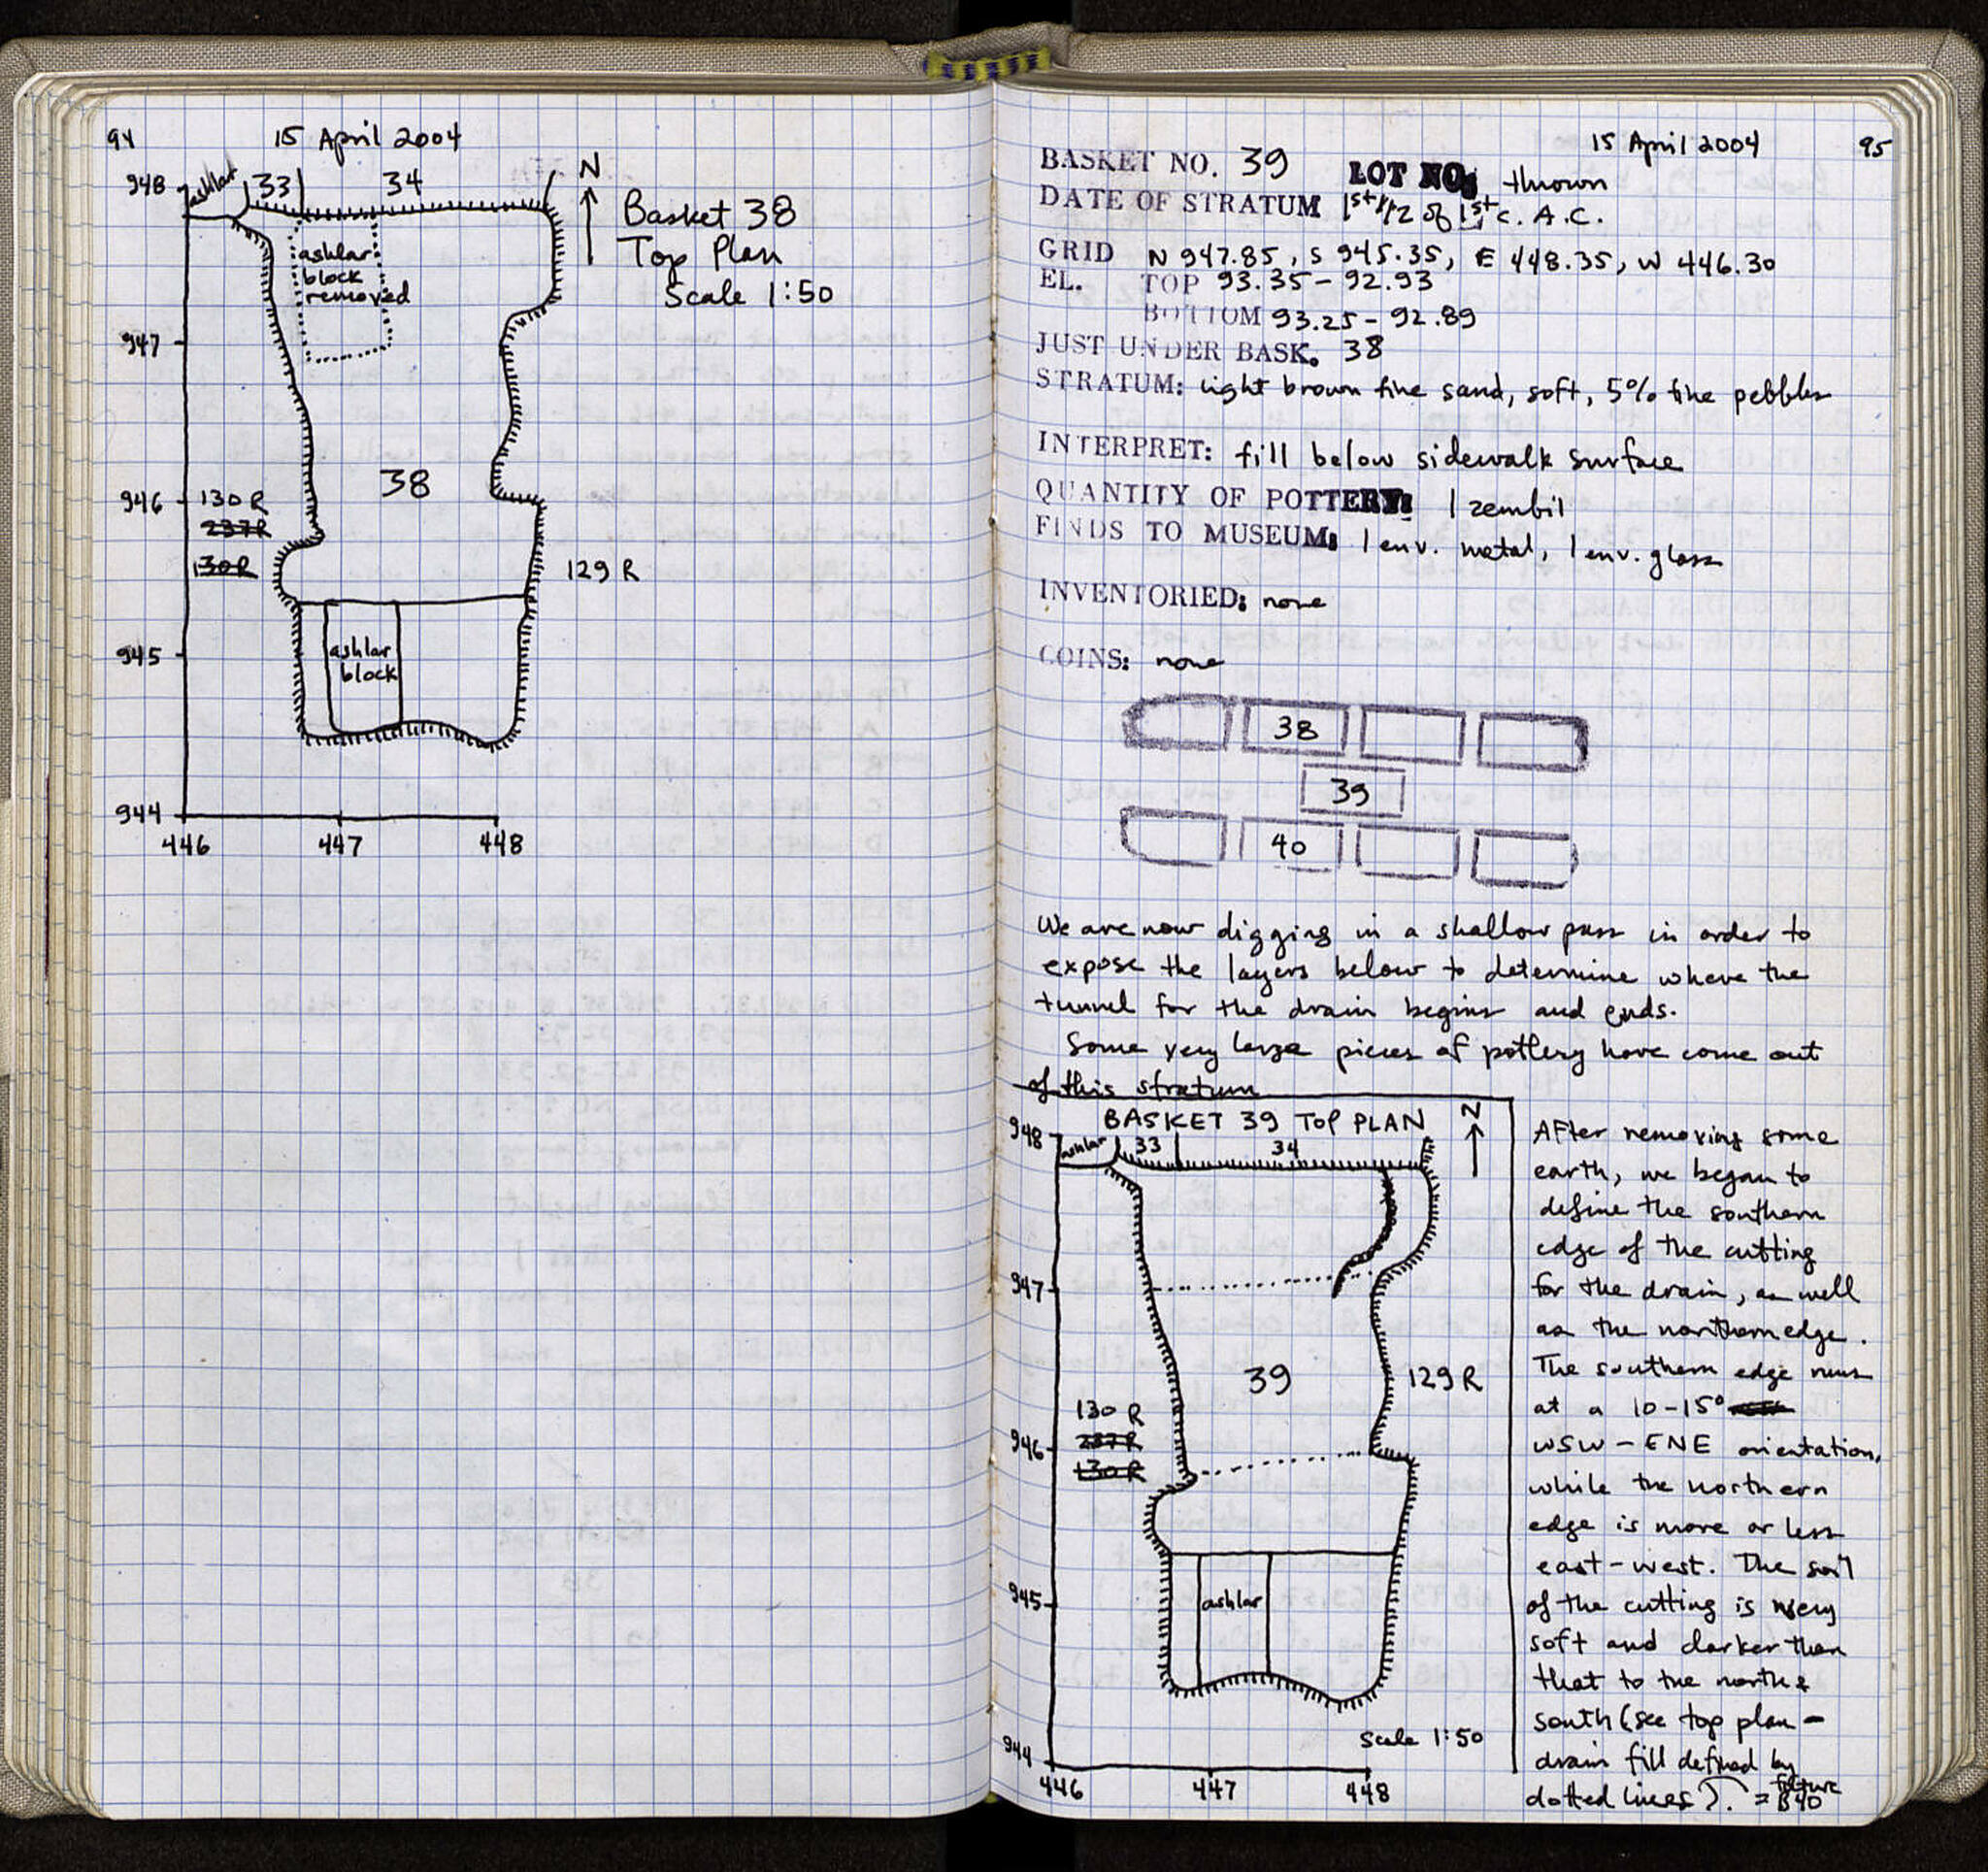 94
15 April 2004
948
ashlar
33
34
N
Basket 38
Top Plan
Scale 1:50
ashlar
block
removed
947
38
946
130 R
237R
130R
129 R
945
ashlar
block
944
446
447
448
15 April 2004
95
BASKET NO. 39 LOT NO. thrown
DATE OF STRATUM 1st 1/2 of 1st c. A.C.
GRID N 947.85, S 945.35, E 448.35, W 446.30
EL. TOP 93.35-92.93
BOTTOM 93.25-92.89
JUST UNDER BASK. 38
STRATUM: light brown fine sand, soft, 5% fine pebbles
INTERPRET: fill below sidewalk surface
QUANTITY OF POTTERY: 1 zembil
FINDS TO MUSEUM: 1 env. metal, 1 env. glass
INVENTORIED: none
COINS: none
38
39
40
We are now digging in a shallow pass in order to
expose the layers below to determine where the
tunnel for the drain begins and ends.
Some very large pieces of pottery have come out
of this stratum
BASKET 39 TOP PLAN
N
948
ashlar
33
34
947
39
129 R
130 R
946
237R
130 R
945
ashlar
Scale 1:50
944
446
447
448
After removing some
earth, we began to
define the southern
edge of the cutting
for the drain, as well
as the northern edge.
The southern edge runs
at a 10-15°
WSW-ENE orientation,
while the northern
edge is more or less
east-west. The soil
of the cutting is very
soft and darker than
that to the north &
south (see top plan -
drain fill defined by
dotted lines). = future
B40